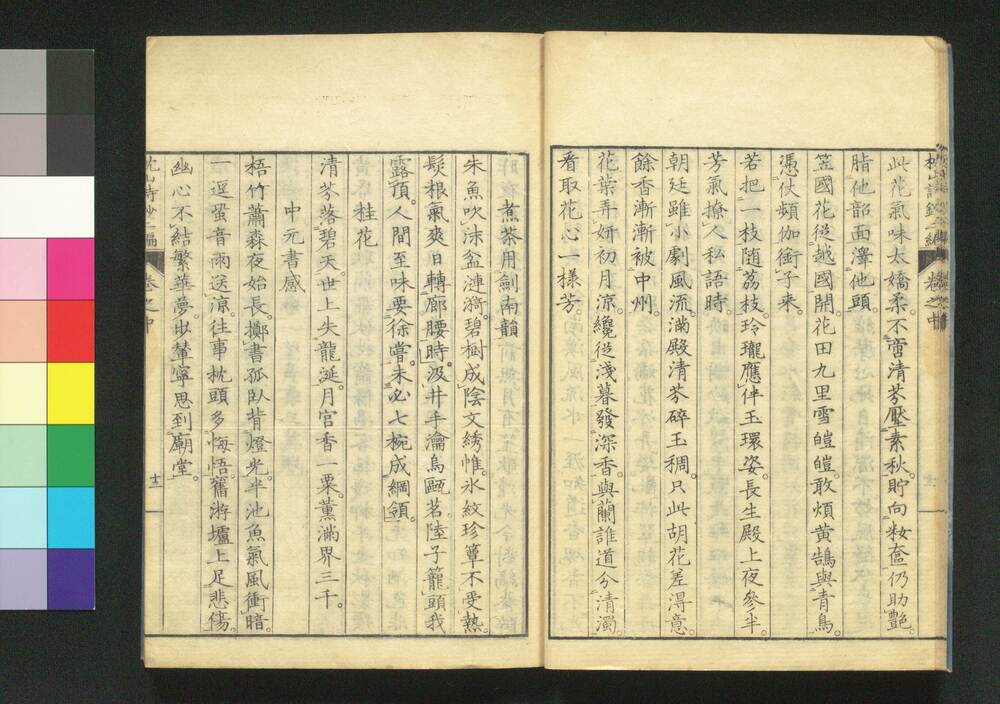 此花氣味太嬌柔。不啻清芬壓素秋。貯向籹奩仍助艷。
脂他韶面澤他頭。
笠國花從越國開。花田九里雪皚皚。敢煩黃鵠與青鳥。
憑仗頻伽銜子來。
若把一枝随荔枝。玲瓏應伴玉環姿。長生殿上夜參半。
芳氣撩人私語時。
朝廷雖小劇風流。滿殿清芬碎玉稠。只此胡花差淂意。
餘香漸漸被中州。
花葉弄妍初月涼。纔從淺暮發深香。與蘭誰道分清濁。
看取花心一樣芳。
煮茶用劍南韻
朱魚吹沫盆漣漪。碧樹成陰文綉帷。氷紋珍簟不受熱。
鬚根氣爽日轉廊腰時。汲井手瀹烏甌茗。陸子籠頭我
露頂。人間至味要徐嘗。未必七椀成綱領。
桂花
清芬落碧天。世上失龍涎。月宮香一粟。薰滿界三千。
中元書感
梧竹蕭森夜始長。擲書孤臥背燈光。半池魚氣風衝暗。
一逕蛩音雨送涼。往事枕頭多悔悟。舊游壚上足悲傷。
幽心不結繁華夢。出輦寧思到廟堂。
卷之中
十二